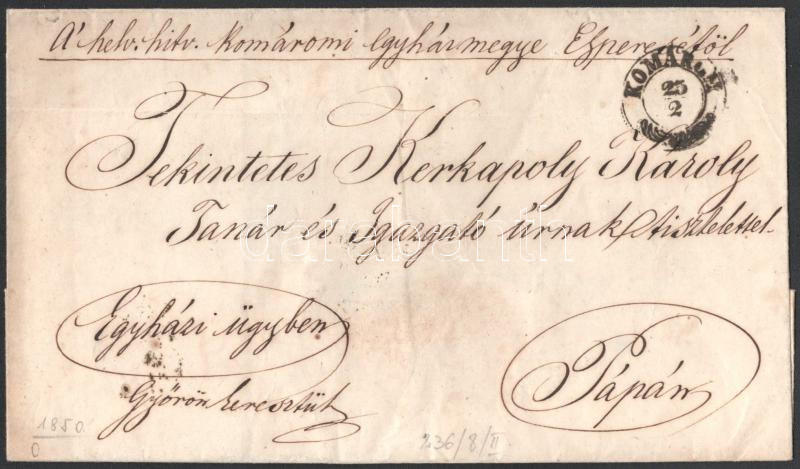 A' helv. hitv. Komáromi egyházmegye Esperesétöl
KOMÁROM
25
2
Tekintetes Kerkapoly Károly
Tanár és Igazgató úrnak tisztelettel.
darabanth
Egyházi ügyben
Győrön keresztűl
Pápán
1850.
0
236/8/II